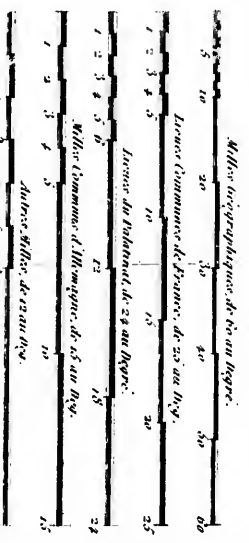 Milles Géographiques, de 60 au Degré.
5 10 20 30 40 50 60
Lieues Communes de France, de 25 au Deg.
1 2 3 4 5 10 15 20 25
Lieues du Palatinat, de 24 au Degré.
1 2 3 4 5 6 12 18 24
Milles Communs d'Allemagne, de 15 au Deg.
1 2 3 4 5 10 15
Autres Milles, de 12 au Deg.